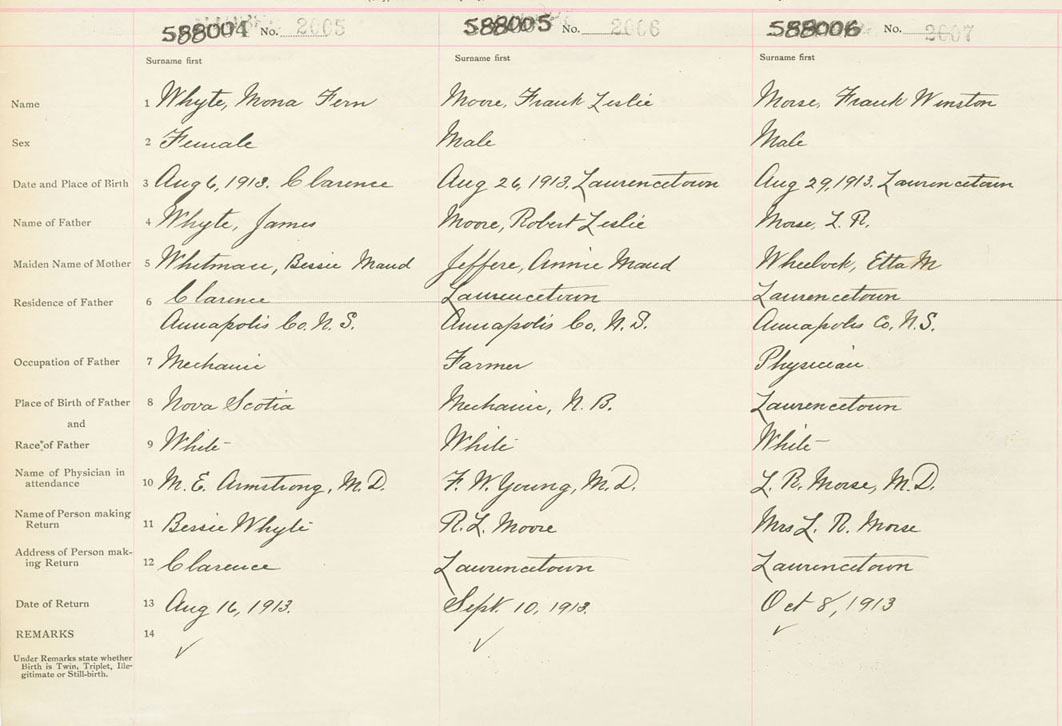 588004 No. 2005 588005 No. 2006 588006 No. 2007
Surname first Surname first Surname first
Name 1 Whyte, Mona Fern Moore, Frank Leslie Morse, Frank Winston
Sex 2 Female Male Male
Date and Place of Birth 3 Aug 6, 1913. Clarence Aug 26, 1913. Laurencetown Aug 29, 1913. Laurencetown
Name of Father 4 Whyte, James Moore, Robert Leslie Morse, L. R.
Maiden Name of Mother 5 Whitman, Bessie Maud Annie Maud Wheelock, Etta M
Residence of Father 6 Clarence Laurencetown Laurencetown
Annapolis Co. N. S. Annapolis Co, N. S. Annapolis Co, N. S.
Occupation of Father 7 Mechanic Farmer Physician
Place of Birth of Father 8 Nova Scotia Mechanic, N. B. Laurencetown
and
Race of Father 9 White White White
Name of Physician in
attendance 10 M. E. Armstrong, M. D. F. W. Young, M. D. L. R. Morse, M. D.
Name of Person making
Return 11 Bessie Whyte R. L. Moore Mrs L. R. Morse
Address of Person mak-
ing Return 12 Clarence Lawrencetown Lawrencetown
Date of Return 13 Aug 16, 1913. Sept. 10, 1913. Oct 8, 1913
REMARKS 14
Under Remarks state whether
Birth is Twin, Triplet, Ille-
gitimate or Still-birth.